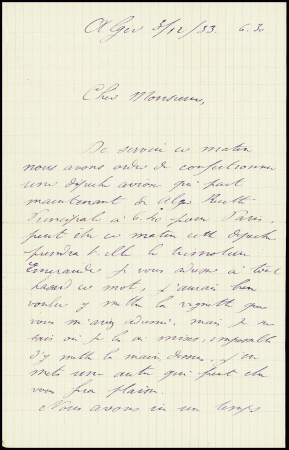 Alger 3/12/33 6.30
Cher Monsieur,
De service ce matin
nous avons ordre de confectionner
une dépêche avion qui part
maintenant de Alger Recette
Principale à 6.40 pour Paris,
peut être ce matin cette dépêche
prendra t-elle le trimoteur
Emeraude je vous adresse à tout
hasard ce mot, j'aurais bien
voulu y mettre la vignette que
vous m'avez adressé, mais je ne
sais où je l'ai mise, impossible
d'y mettre la main dessus, j'en
mets une autre qui peut être
vous fera plaisir.
Nous avons ici un temps